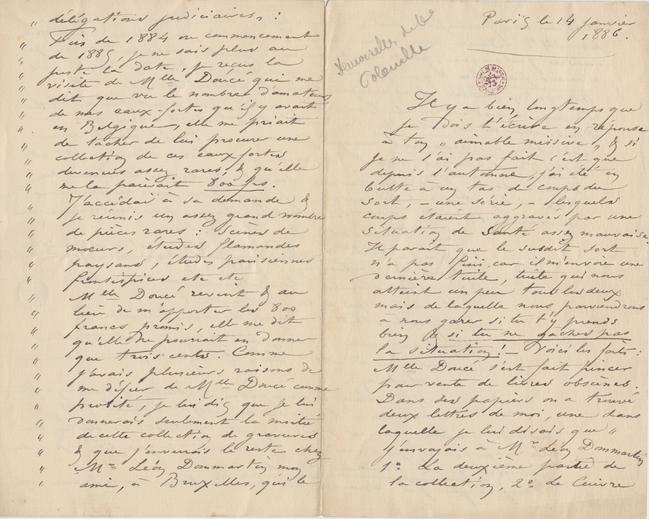 Paris le 14 janvier
1886.
Il y a bien longtemps que
je dois t'écrire en réponse
à ton „ aimable missive „ & si
je ne l'ai pas fait c'est que
depuis l'automne, j'ai été en
butte à un tas de coups du
sort, – une série, – lesquels
coups étaient aggravés par une
situation de santé assez mauvaise.
Il parait que le susdit sort
n'a pas fini car il m'envoie une
dernière tuile, tuile qui nous
atteint un peu tous les deux
mais de laquelle nous parviendrons
à nous garer si tu t'y prends
bien & si tu ne gâches pas
la situation! – Voici les faits:
Mlle Doucé s'est fait pincer
pour vente de livres obscènes.
Dans ses papiers on a trouvé
deux lettres de moi, une dans
laquelle je lui disais que „
j'envoyais à Mr Léon Dommartin
1º. La deuxième partie de
la collection, 2º. le Cuivre
délégations judiciaires, :
„ Fin de 1884 ou commencement
„ de 1885, je ne sais plus au
„ juste la date, je reçus la
„ visite de Mlle Doucé qui me
„ dit que vu le nombre d'amateurs
„ de mes eaux-fortes qu'il y avait
„ en Belgique, elle me priait
„ de tacher de lui procurer une
„ collection de ces eaux fortes
„ devenues assez rares, & qu'elle
„ me la paierait 800 frs.
„ J'accédai à sa demande &
„ je réunis un assez grand nombre
„ de pièces rares : scènes de
„ moeurs, études flamandes
„ paysans, études parisiennes
„ frontispices etc etc
„ Mlle Doucé revint & au
„ lieu de m'apporter les 800
„ francs promis, elle me dit
„ qu'elle ne pourrait en donner
„ que trois cents. Comme
„ j'avais plusieurs raisons de
„ me défier de Mlle Doucé comme
„ probité, je lui dis que je lui
„ donnerais seulement la moitié
„ de cette collection de gravures
„ & que j'enverrais le reste chez
„ Mr Léon Dommartin mon
„ ami, à Bruxelles, qui le